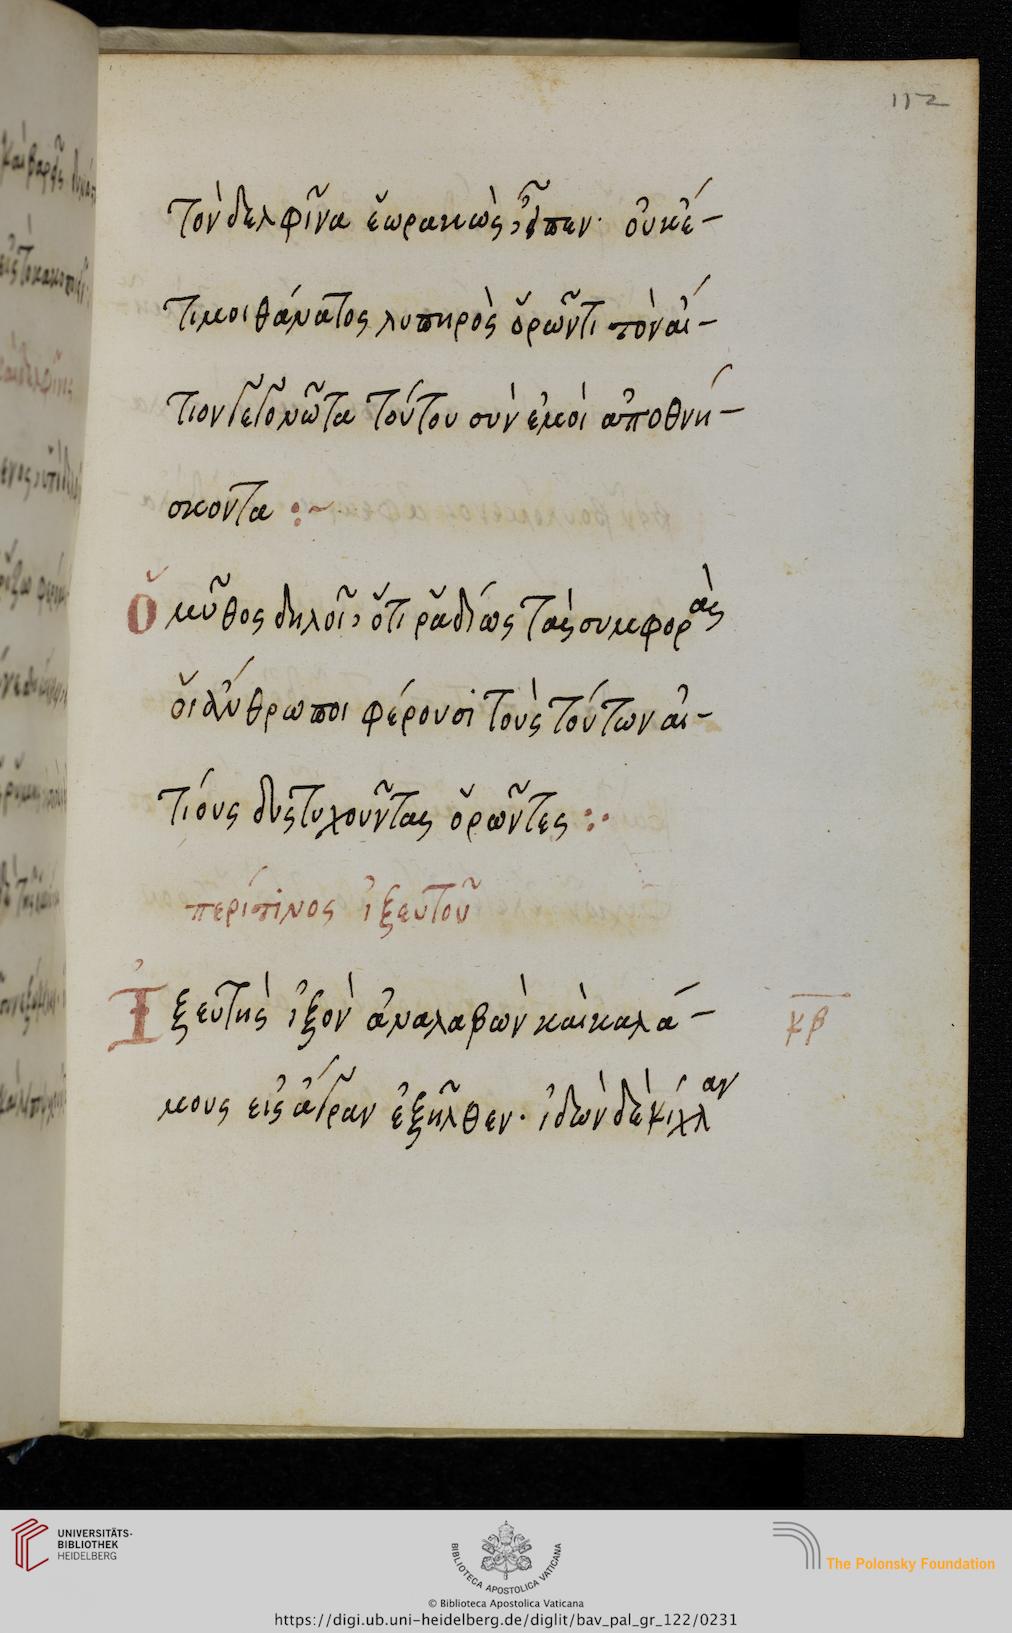 112
τὸν δελφῖνα ἑωρακὼς, εἶπεν· οὐκέ-
τι μοι θάνατος λυπηρὸς ὁρῶντι τὸν αἴ-
τιον γεγονῶτα τούτου σὺν ἐμοὶ ἀποθνή-
σκοντα :~
Ὁ μῦθος δηλοῖ, ὅτι ῥαδίως τὰς συμφορὰς
οἱ ἄνθρωποι φέρουσι τοὺς τούτων αἰ-
τίους δυστυχοῦντας ὁρῶντες :·
περίπινος ἰξευτοῦ
Ἰξευτὴς ἰξὸν ἀναλαβὼν καὶ καλά-
κβ
μους εἰς ἄγραν ἐξῆλθεν· ἰδὼν δὲ κίχλαν
UNIVERSITÄTS-
BIBLIOTHEK
HEIDELBERG
BIBLIOTECA APOSTOLICA VATICANA
The Polonsky Foundation
© Biblioteca Apostolica Vaticana
https://digi.ub.uni-heidelberg.de/diglit/bav_pal_gr_122/0231